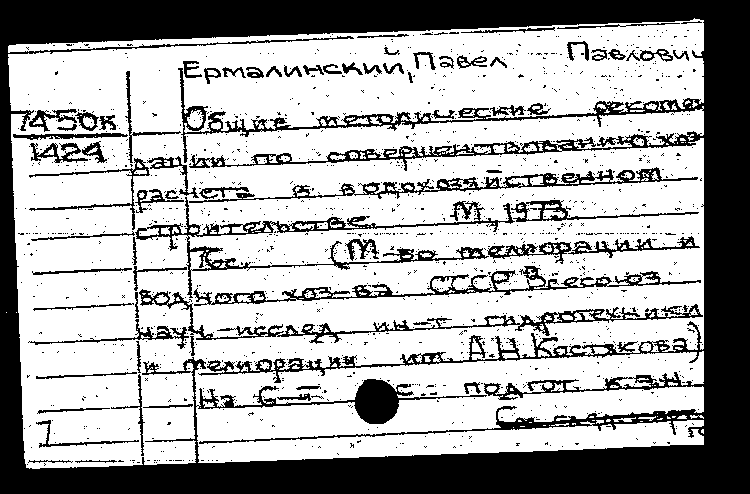 Ермалинский, Павел Павлович
1450к
1424
Общие методические рекомен
дации по совершенствованию хоз
расчета в водохозяйственном
строительстве. М., 1973.
(М-во мелиорации и
водного хоз-ва СССР Всесоюз
науч.-исслед. ин-т гидротехники
и мелиорации им. А.Н. Костякова)
На подгот. к.э.н.
См. след. карт.